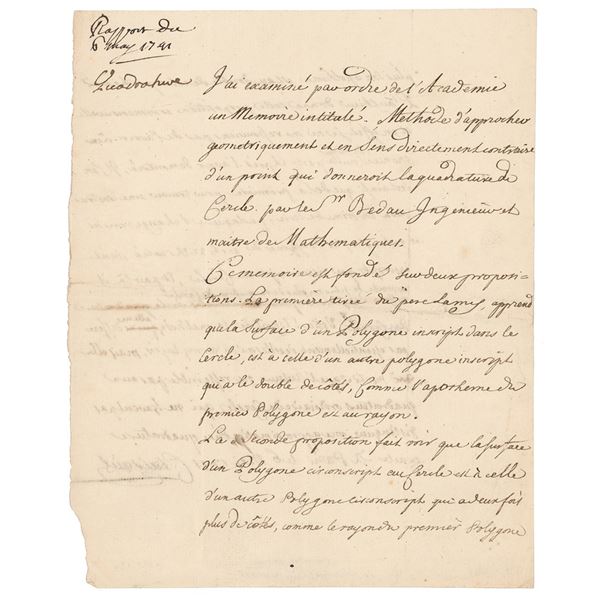 Rapport du
6 may 1741
Quadrature
J'ai examiné par ordre de l'Academie
un Memoire intitulé. Methode d'approcher
geometriquement et en Sens directement contraire
d'un point qui donneroit la quadrature du
Cercle par le Sr Bedau Ingenieur et
maitre de Mathematiques.
Ce memoire est fondé sur deux proposi-
tions. La premiere tirée du pere Lamy, apprend
que la surface d'un Polygone inscript dans le
Cercle, est à celle d'un autre polygone inscript
qui a le double de côtés, comme l'apotheme du
premier Polygone est au rayon.
La Seconde proposition fait voir que la surface
d'un Polygone circonscript au Cercle est à celle
d'un autre Polygone circonscript qui a deux fois
plus de côtés, comme le rayon du premier Polygone